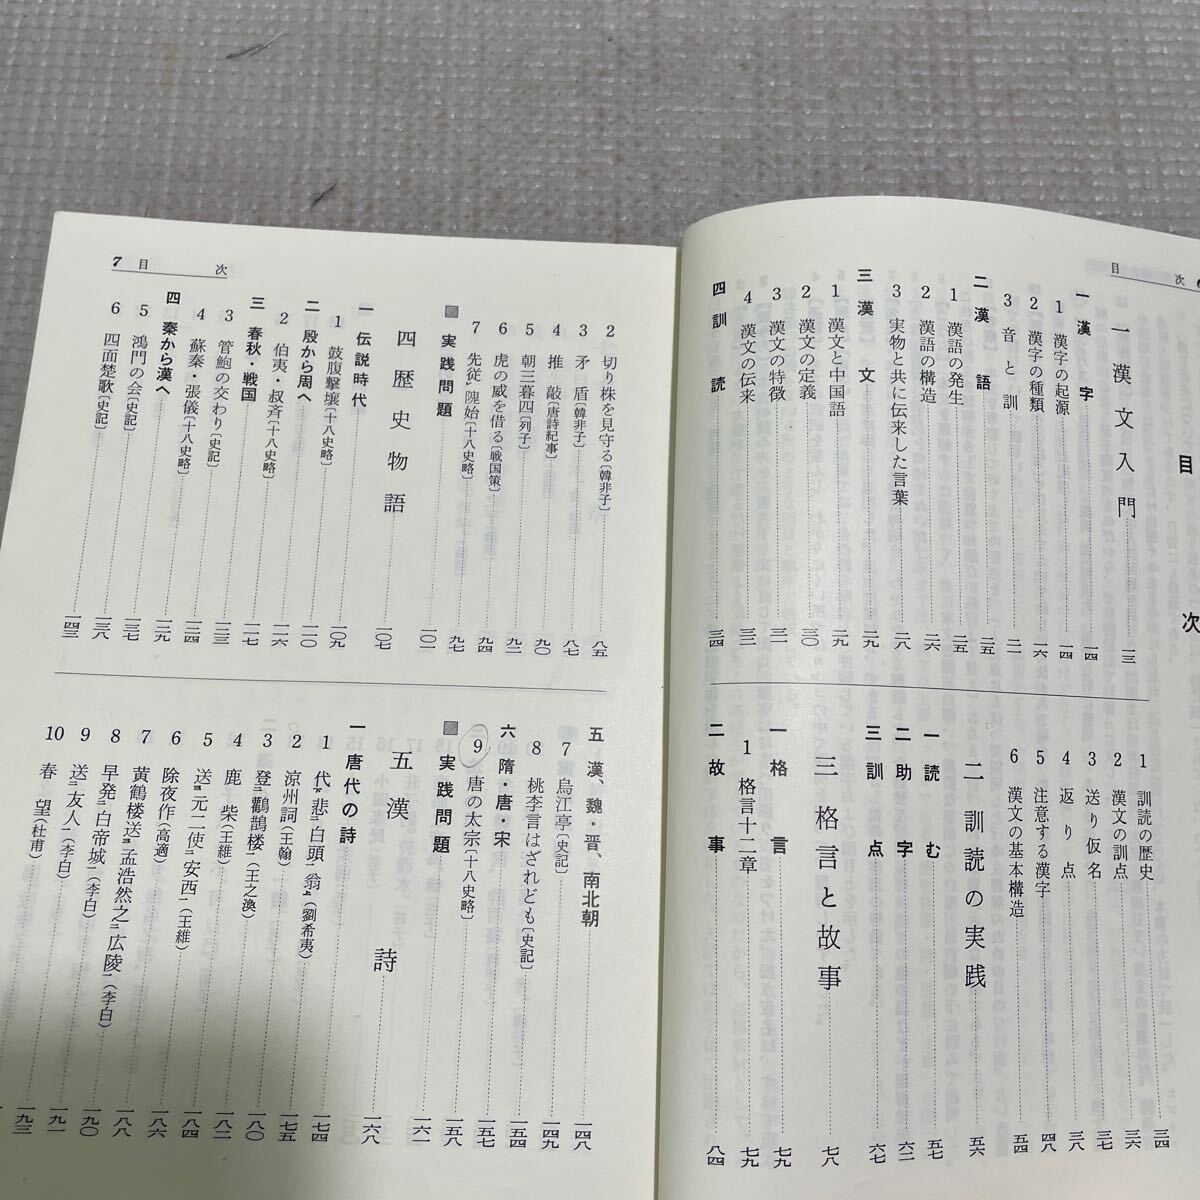 目　次
目　次
一　漢文入門……一三
一　漢　字……一四
1　漢字の起源……一四
2　漢字の種類……一六
3　音と訓……二一
二　漢　語……二五
1　漢語の発生……二五
2　漢語の構造……二六
3　実物と共に伝来した言葉……二八
三　漢　文……二九
1　漢文と中国語……二九
2　漢文の定義……三〇
3　漢文の特徴……三一
4　漢文の伝来……三三
四　訓　読……三四
1　訓読の歴史……三四
2　漢文の訓点……三六
3　送り仮名……三七
4　返り点……三八
5　注意する漢字……四八
6　漢文の基本構造……五四
二　訓読の実践……五六
一　読　む……五七
二　助　字……六二
三　訓　点……六七
三　格言と故事……七八
一　格　言……七九
1　格言十二章……七九
二　故　事……八四
7　目　次
2　切り株を見守る〔韓非子〕……八五
3　矛　盾〔韓非子〕……八七
4　推　敲〔唐詩紀事〕……九〇
5　朝三暮四〔列子〕……九二
6　虎の威を借る〔戦国策〕……九四
7　先従レ隗始〔十八史略〕……九七
実践問題……一〇一
四　歴史物語……一〇七
一　伝説時代
1　鼓腹撃壌〔十八史略〕……一〇九
二　殷から周へ……一二〇
2　伯夷・叔斉〔十八史略〕……一二六
三　春秋・戦国……一二七
3　管鮑の交わり〔史記〕……一三三
4　蘇秦・張儀〔十八史略〕……一三四
四　秦から漢へ……一二九
5　鴻門の会〔史記〕……一三七
6　四面楚歌〔史記〕……一三八
……一四三
五　漢、魏・晋、南北朝……一四八
7　烏江亭〔史記〕……一四九
8　桃李言はざれども〔史記〕……一五四
六　隋・唐・宋……一五七
9　唐の太宗〔十八史略〕……一五八
実践問題……一六一
五　漢　詩……一六八
一　唐代の詩
1　代下悲二白頭一翁上（劉希夷）……一七四
2　涼州詞（王翰）……一七五
3　登二鸛鵲楼一（王之渙）……一八〇
4　鹿　柴（王維）……一八二
5　送三元二使二安西一（王維）……一八四
6　除夜作（高適）……一八六
7　黄鶴楼送三孟浩然之二広陵一（李白）……一八八
8　早発二白帝城一（李白）……一九〇
9　送二友人一（李白）……一九一
10　春　望（杜甫）……一九三